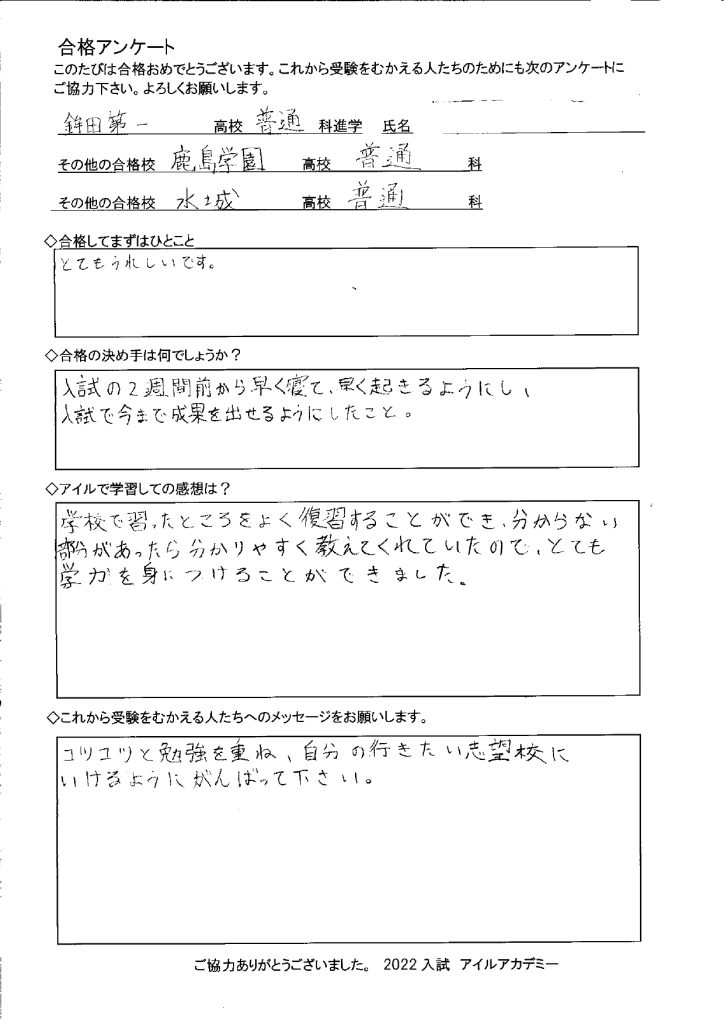 合格アンケート
このたびは合格おめでとうございます。これから受験をむかえる人たちのためにも次のアンケートに
ご協力下さい。よろしくお願いします。
鉾田第一 高校 普通 科進学 氏名
その他の合格校 鹿島学園 高校 普通 科
その他の合格校 水城 高校 普通 科
◇合格してまずはひとこと
とてもうれしいです。
◇合格の決め手は何でしょうか？
入試の2週間前から早く寝て、早く起きるようにし、
入試で今まで成果を出せるようにしたこと。
◇アイルで学習しての感想は？
学校で習ったところをよく復習することができ、分からない
部分があったら分かりやすく教えてくれていたので、とても
学力を身につけることができました。
◇これから受験をむかえる人たちへのメッセージをお願いします。
コツコツと勉強を重ね、自分の行きたい志望校に
いけるようにがんばって下さい。
ご協力ありがとうございました。 2022入試 アイルアカデミー